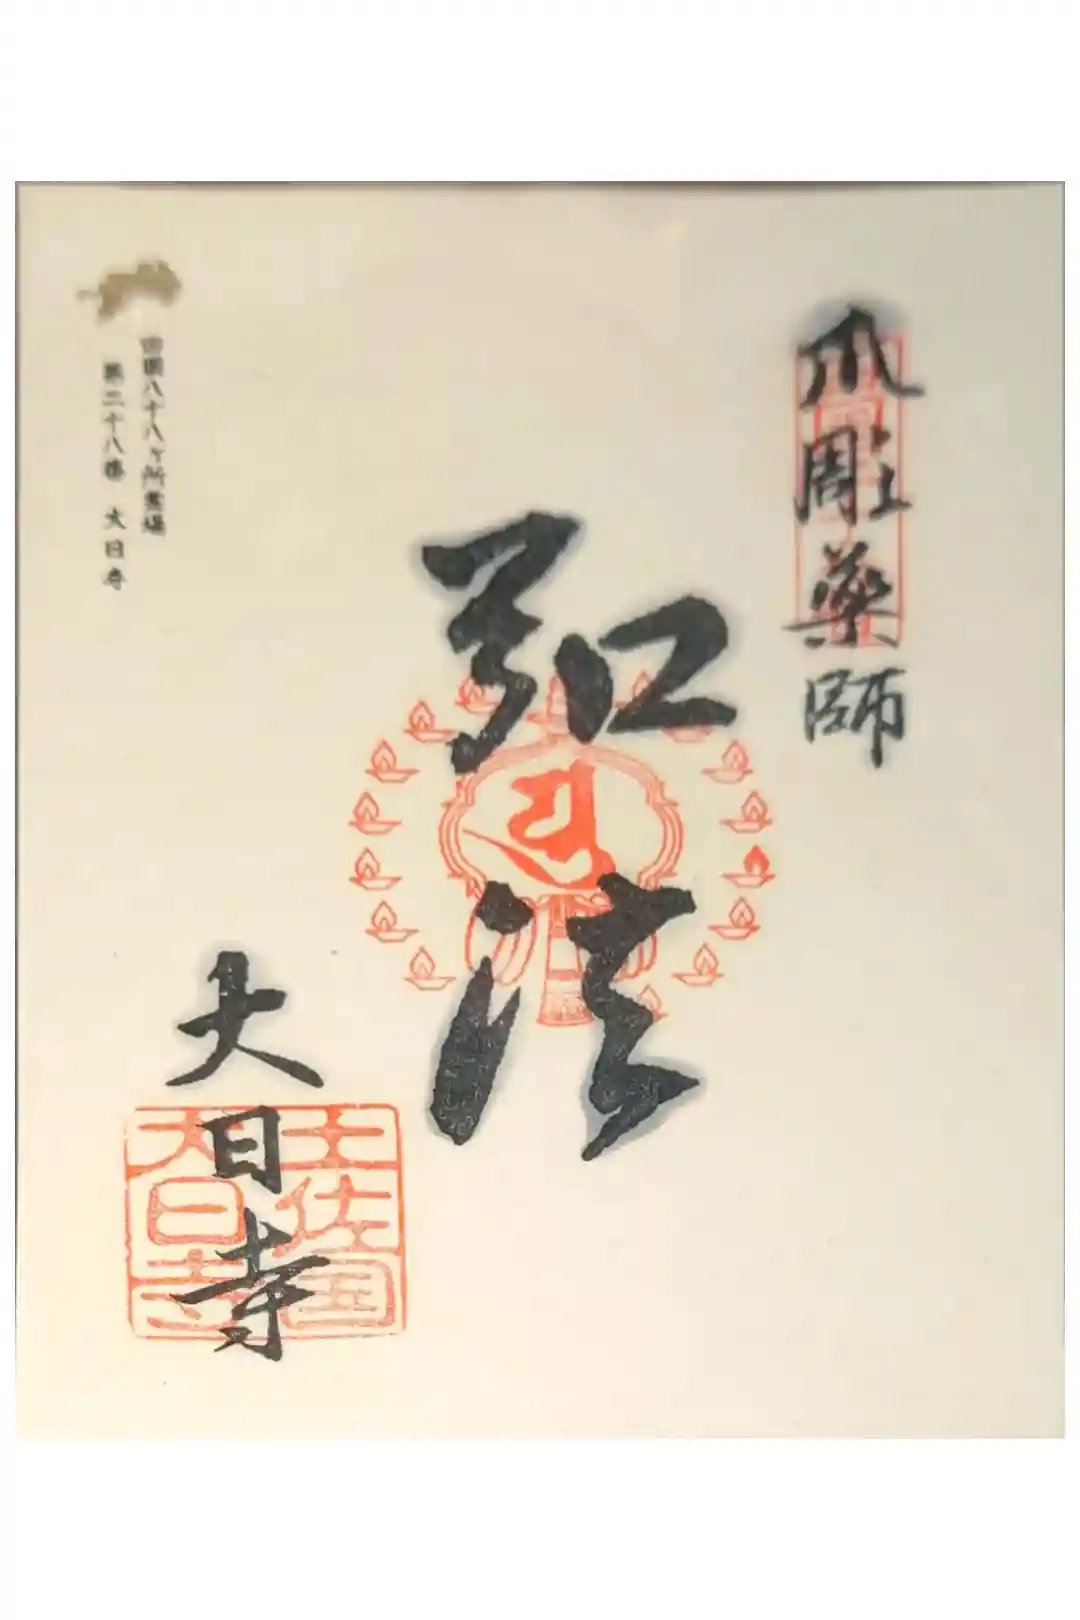 爪彫薬師
弘法
大日寺
土佐国
大日寺
四国八十八ヶ所霊場
第二十八番 大日寺